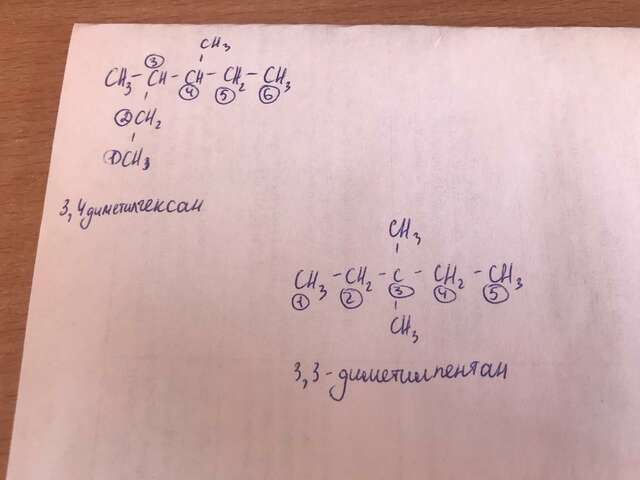 CH₃
③
CH₃ - CH - CH - CH₂ - CH₃
④ ⑤ ⑥
②CH₂
①CH₃
3,4диметилгексан
CH₃
CH₃ - CH₂ - C - CH₂ - CH₃
① ② ③ ④ ⑤
CH₃
3,3-диметилпентан